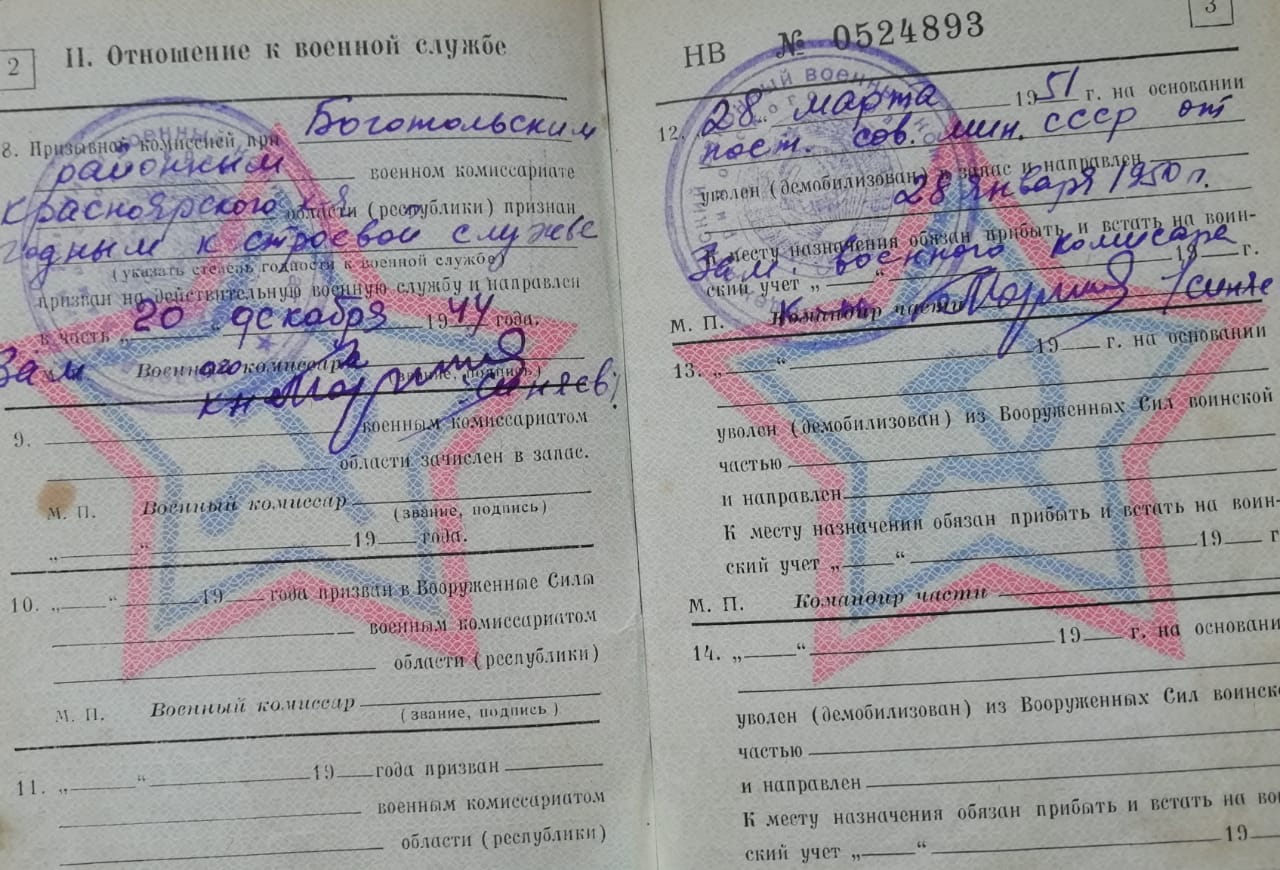 2
II. Отношение к военной службе
8. Призывной комиссией при Боготольским
районным военном комиссариате
Красноярского области (республики) признан
годным к строевой службе
(указать степень годности к военной службе)
призван на действительную военную службу и направлен
в часть „ 20 “ декабря 1944 года.
Зам Военного комиссар
(звание, подпись)
Синяев
9. военным комиссариатом
области зачислен в запас.
М. П. Военный комиссар
(звание, подпись)
„ “ 19 года.
10. „ “ 19 года призван в Вооруженные Силы
военным комиссариатом
области (республики)
М. П. Военный комиссар
(звание, подпись)
11. „ “ 19 года призван
военным комиссариатом
области (республики)
3
НВ № 0524893
12. „28“ марта 1951 г. на основании
пост. сов. мин. СССР от
уволен (демобилизован) в запас и направлен
28 января 1950 г.
К месту назначения обязан прибыть и встать на воин-
Зам. военного комисара
ский учет „ “ 19 г.
М. П. Командир части
13. „ “ 19 г. на основании
уволен (демобилизован) из Вооруженных Сил воинской
частью
и направлен
К месту назначения обязан прибыть и встать на воин-
ский учет „ “ 19 г
М. П. Командир части
14. „ “ 19 г. на основани
уволен (демобилизован) из Вооруженных Сил воинск
частью
и направлен
К месту назначения обязан прибыть и встать на во
ский учет „ “ 19